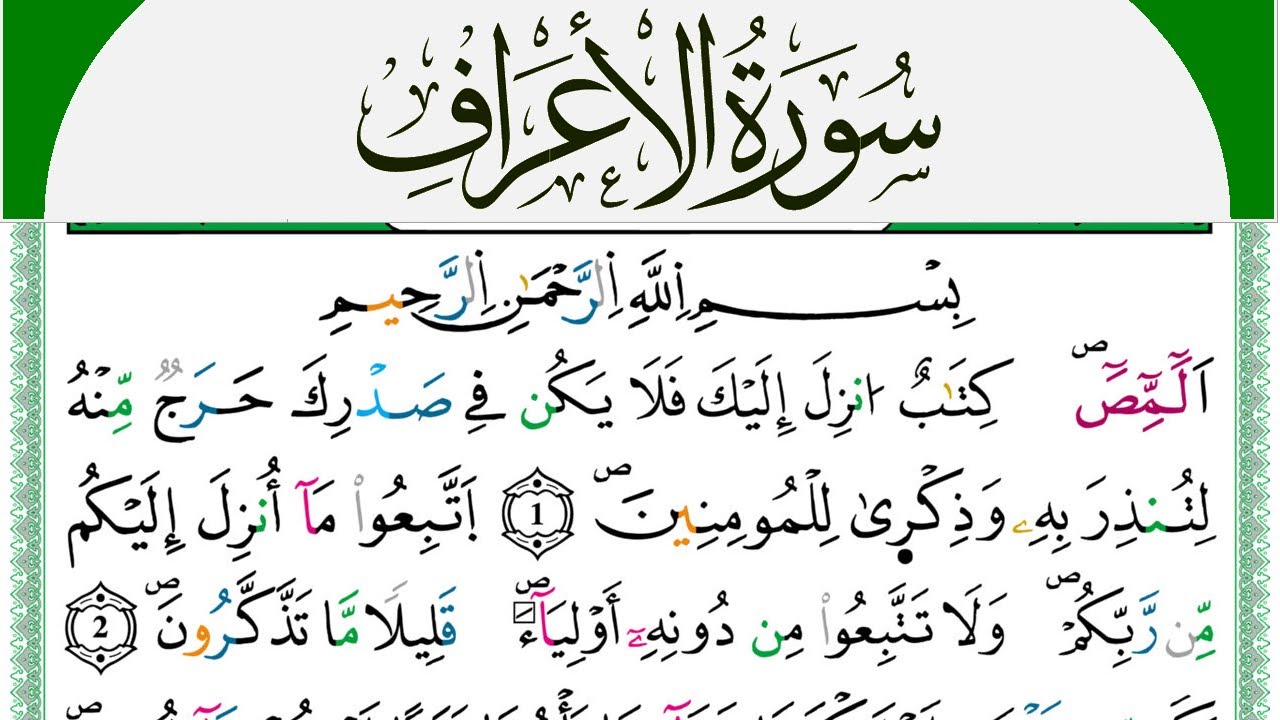 سُورَةُ الأَعْرَافِ
بِسْمِ اِللَّهِ اِلرَّحْمَٰنِ اِلرَّحِيمِ
اَلَٓمِّٓصَٓ ص كِتَٰبٌ ا۟نزِلَ إِلَيْكَ فَلَا يَكُن فِے صَدْرِكَ حَرَجٌ مِّنْهُ
لِتُنذِرَ بِهِۦ وَذِكْر۪ىٰ لِلْمُومِنِينَ ص 1 اَتَّبِعُواْ مَآ أُنزِلَ إِلَيْكُم
مِّن رَّبِّكُمْ ص وَلَا تَتَّبِعُواْ مِن دُونِهِۦٓ أَوْلِيَآءَ ص قَلِيلًا مَّا تَذَّكَّرُونَ ص 2